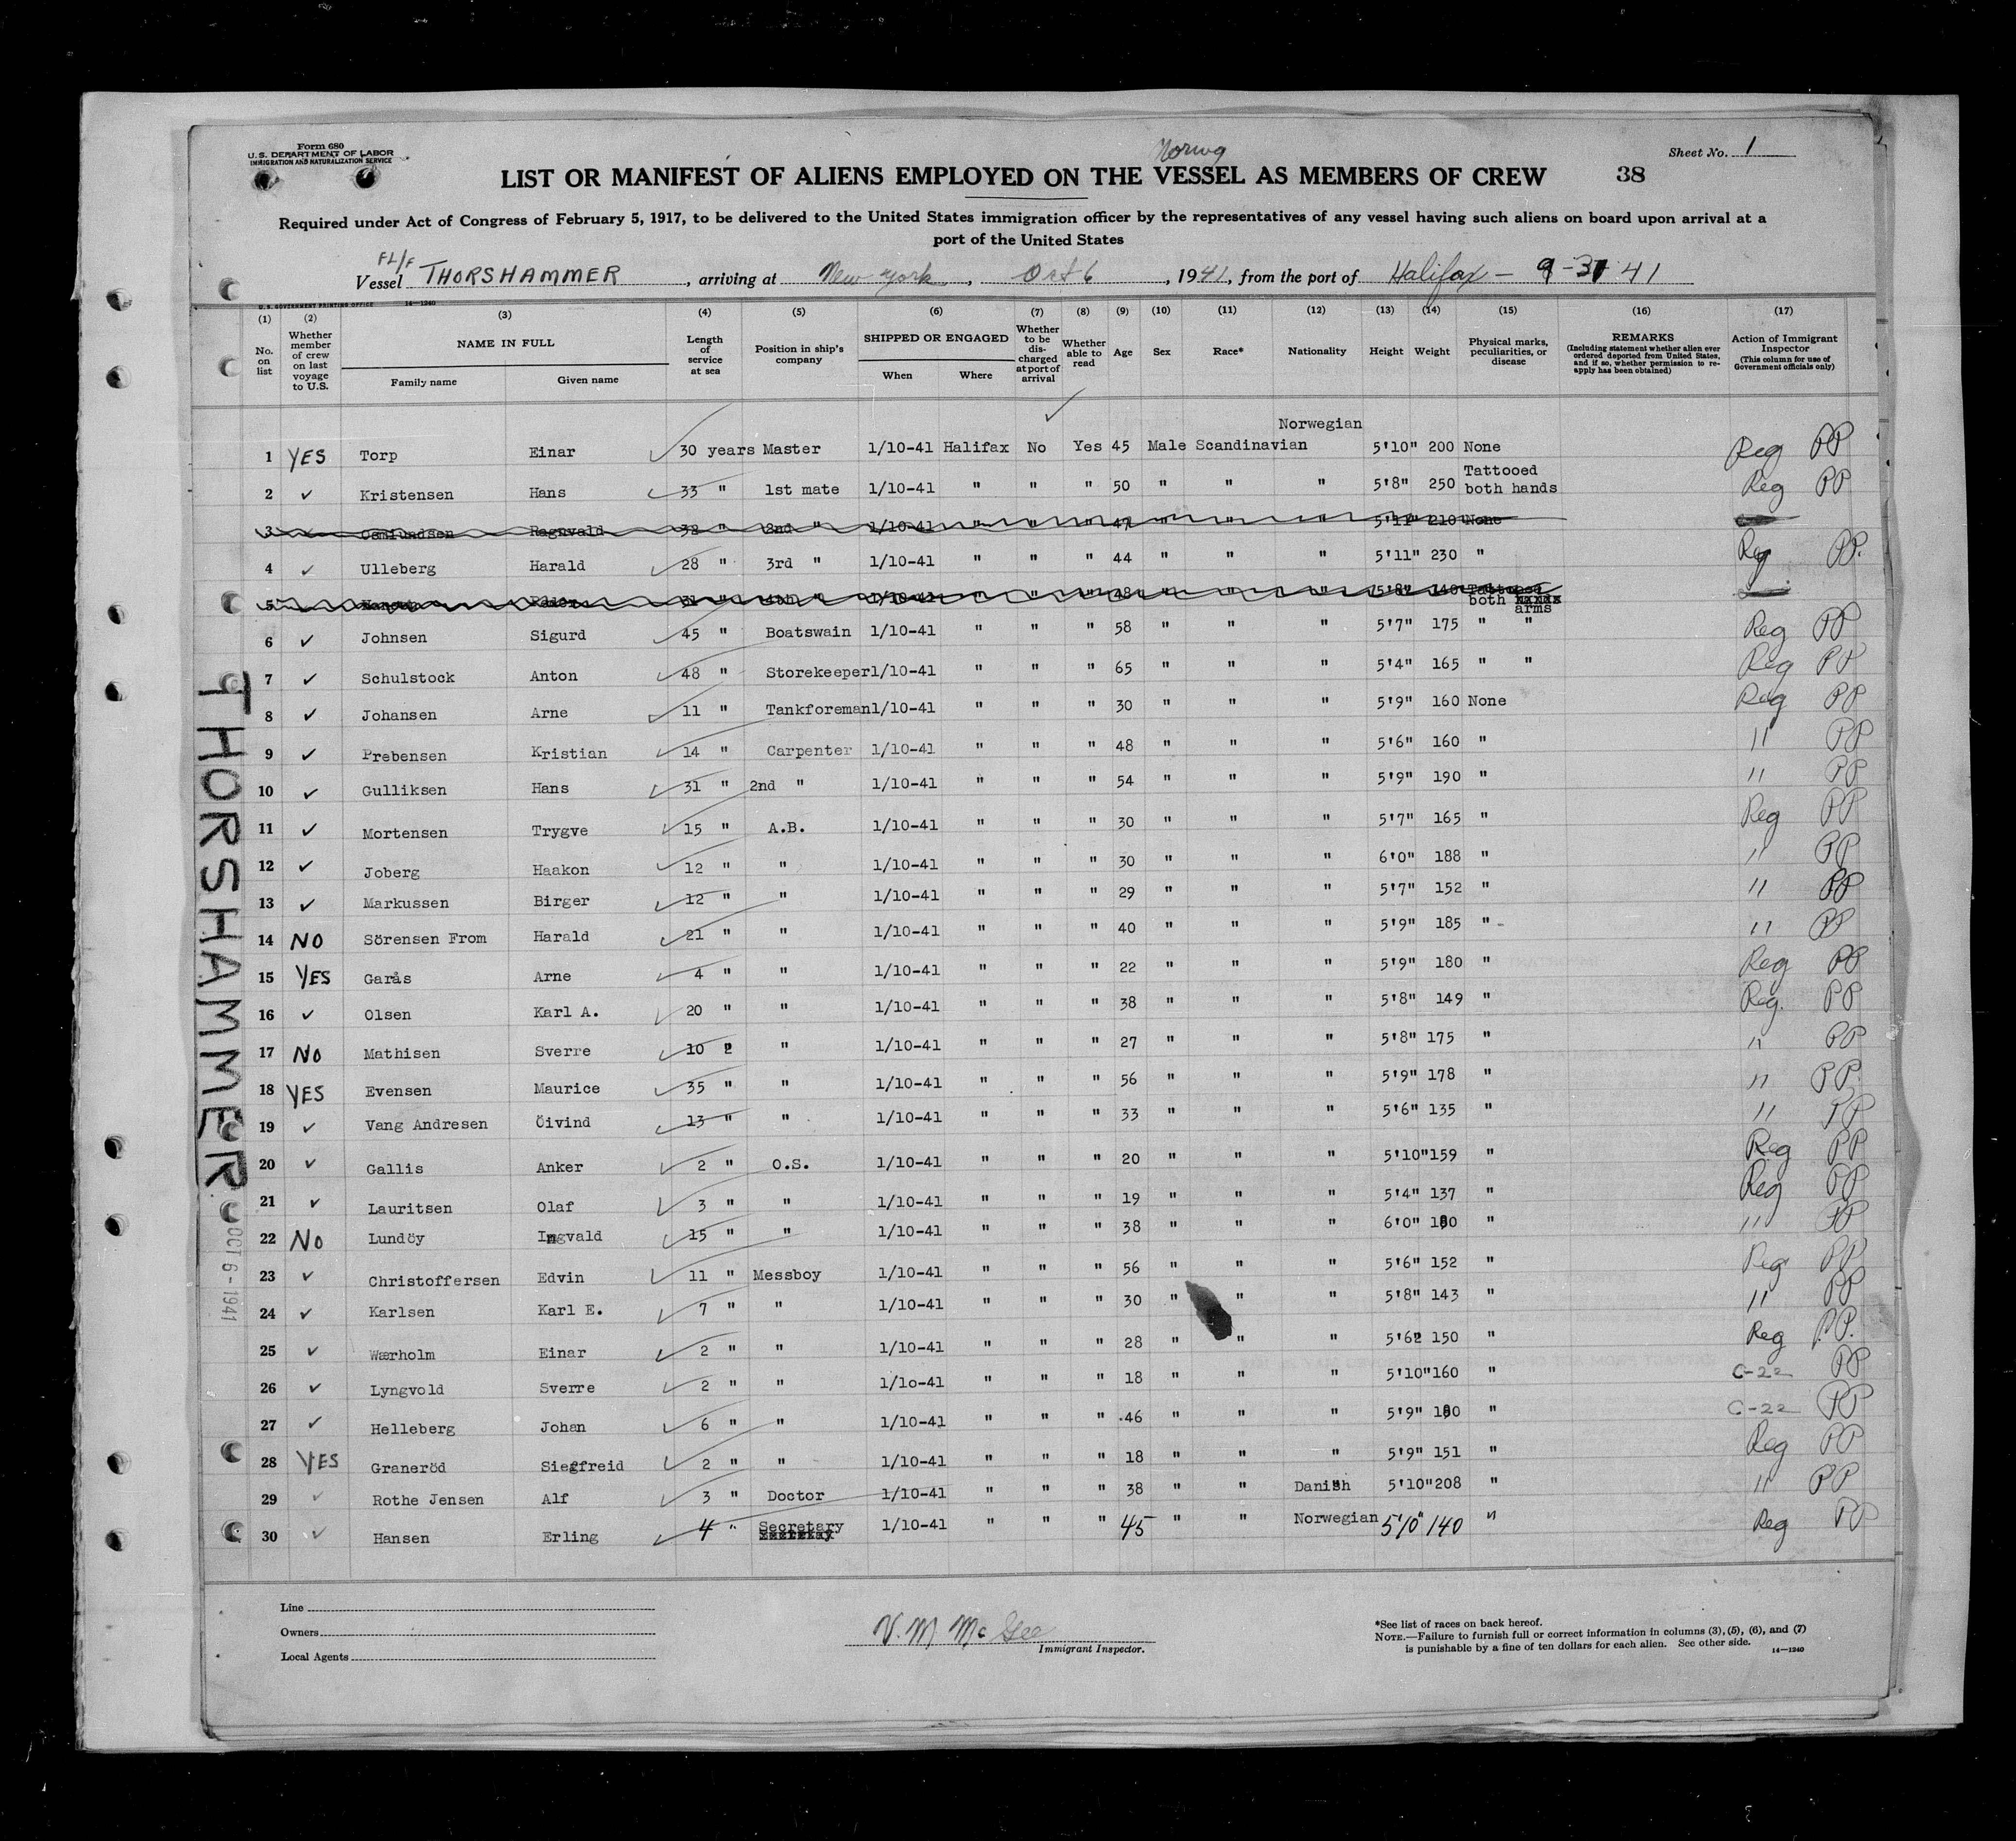 Form 680
U.S. DEPARTMENT OF LABOR
IMMIGRATION AND NATURALIZATION SERVICE
Norwg
Sheet No. 1
LIST OR MANIFEST OF ALIENS EMPLOYED ON THE VESSEL AS MEMBERS OF CREW 38
Required under Act of Congress of February 5, 1917, to be delivered to the United States immigration officer by the representatives of any vessel having such aliens on board upon arrival at a
port of the United States
FL/F
Vessel THORSHAMMER, arriving at New York, Oct 6, 1941, from the port of Halifax — 41
U.S. GOVERNMENT PRINTING OFFICE 14—1240
(1) (2) (3) (4) (5) (6) (7) (8) (9) (10) (11) (12) (13) (14) (15) (16) (17)
No. on list
Whether member of crew on last voyage to U.S.
NAME IN FULL
Family name Given name
Length of service at sea
Position in ship's company
SHIPPED OR ENGAGED
When Where
Whether to be discharged at port of arrival
Whether able to read
Age
Sex
Race*
Nationality
Height
Weight
Physical marks, peculiarities, or disease
REMARKS
(Including statement whether alien ever ordered deported from United States, and if so, whether permission to reapply has been obtained)
Action of Immigrant Inspector
(This column for use of Government officials only)
1 YES Torp Einar 30 years Master 1/10-41 Halifax No Yes 45 Male Scandinavian Norwegian 5'10" 200 None Reg PP
2 ✓ Kristensen Hans 33 " 1st mate 1/10-41 " " " 50 " " " 5'8" 250 Tattooed both hands Reg PP
3 Ragnvald 32 " 2nd " 1/10-41 " " " 47 " " " 5'11" 210 None
4 ✓ Ulleberg Harald 28 " 3rd " 1/10-41 " " " 44 " " " 5'11" 230 " Reg PP.
5 1/10-41 " " " 48 " " " 5'8" 140 Tattooed both arms
6 ✓ Johnsen Sigurd 45 " Boatswain 1/10-41 " " " 58 " " " 5'7" 175 " " Reg PP
7 ✓ Schulstock Anton 48 " Storekeeper 1/10-41 " " " 65 " " " 5'4" 165 " " Reg PP
8 ✓ Johansen Arne 11 " Tankforeman 1/10-41 " " " 30 " " " 5'9" 160 None Reg PP
9 ✓ Prebensen Kristian 14 " Carpenter 1/10-41 " " " 48 " " " 5'6" 160 " " PP
10 ✓ Gulliksen Hans 31 " 2nd " 1/10-41 " " " 54 " " " 5'9" 190 " " PP
11 ✓ Mortensen Trygve 15 " A.B. 1/10-41 " " " 30 " " " 5'7" 165 " Reg PP
12 ✓ Joberg Haakon 12 " " 1/10-41 " " " 30 " " " 6'0" 188 " " PP
13 ✓ Markussen Birger 12 " " 1/10-41 " " " 29 " " " 5'7" 152 " " PP
14 NO Sörensen From Harald 21 " " 1/10-41 " " " 40 " " " 5'9" 185 " " PP
15 YES Garås Arne 4 " " 1/10-41 " " " 22 " " " 5'9" 180 " Reg PP
16 ✓ Olsen Karl A. 20 " " 1/10-41 " " " 38 " " " 5'8" 149 " Reg. PP
17 NO Mathisen Sverre 10 2 " 1/10-41 " " " 27 " " " 5'8" 175 " " PP
18 YES Evensen Maurice 35 " " 1/10-41 " " " 56 " " " 5'9" 178 " " PP.
19 ✓ Vang Andresen Öivind 13 " " 1/10-41 " " " 33 " " " 5'6" 135 " " PP
20 ✓ Gallis Anker 2 " O.S. 1/10-41 " " " 20 " " " 5'10" 159 " Reg PP
21 ✓ Lauritsen Olaf 3 " " 1/10-41 " " " 19 " " " 5'4" 137 " Reg PP
22 NO Lundöy Ingvald 15 " " 1/10-41 " " " 38 " " " 6'0" " " PP
23 ✓ Christoffersen Edvin 11 " Messboy 1/10-41 " " " 56 " " " 5'6" 152 " Reg PP
24 ✓ Karlsen Karl E. 7 " " 1/10-41 " " " 30 " " " 5'8" 143 " " PP
25 ✓ Wærholm Einar 2 " " 1/10-41 " " " 28 " " " 5'62 150 " Reg P.P.
26 ✓ Lyngvold Sverre 2 " " 1/1o-41 " " " 18 " " " 5'10" 160 " C-22 PP
27 ✓ Helleberg Johan 6 " " 1/10-41 " " " 46 " " " 5'9" " C-22 PP
28 YES Graneröd Siegfreid 2 " " 1/10-41 " " " 18 " " " 5'9" 151 " Reg PP
29 ✓ Rothe Jensen Alf 3 " Doctor 1/10-41 " " " 38 " " Danish 5'10" 208 " " PP
30 ✓ Hansen Erling 4 " Secretary 1/10-41 " " " 45 " " Norwegian 5'10" 140 " Reg PP
THORSHAMMER
OCT 6 - 1941
Line
Owners
Local Agents
V. M. McGee
Immigrant Inspector.
*See list of races on back hereof.
NOTE.—Failure to furnish full or correct information in columns (3), (5), (6), and (7)
is punishable by a fine of ten dollars for each alien. See other side. 14—1240